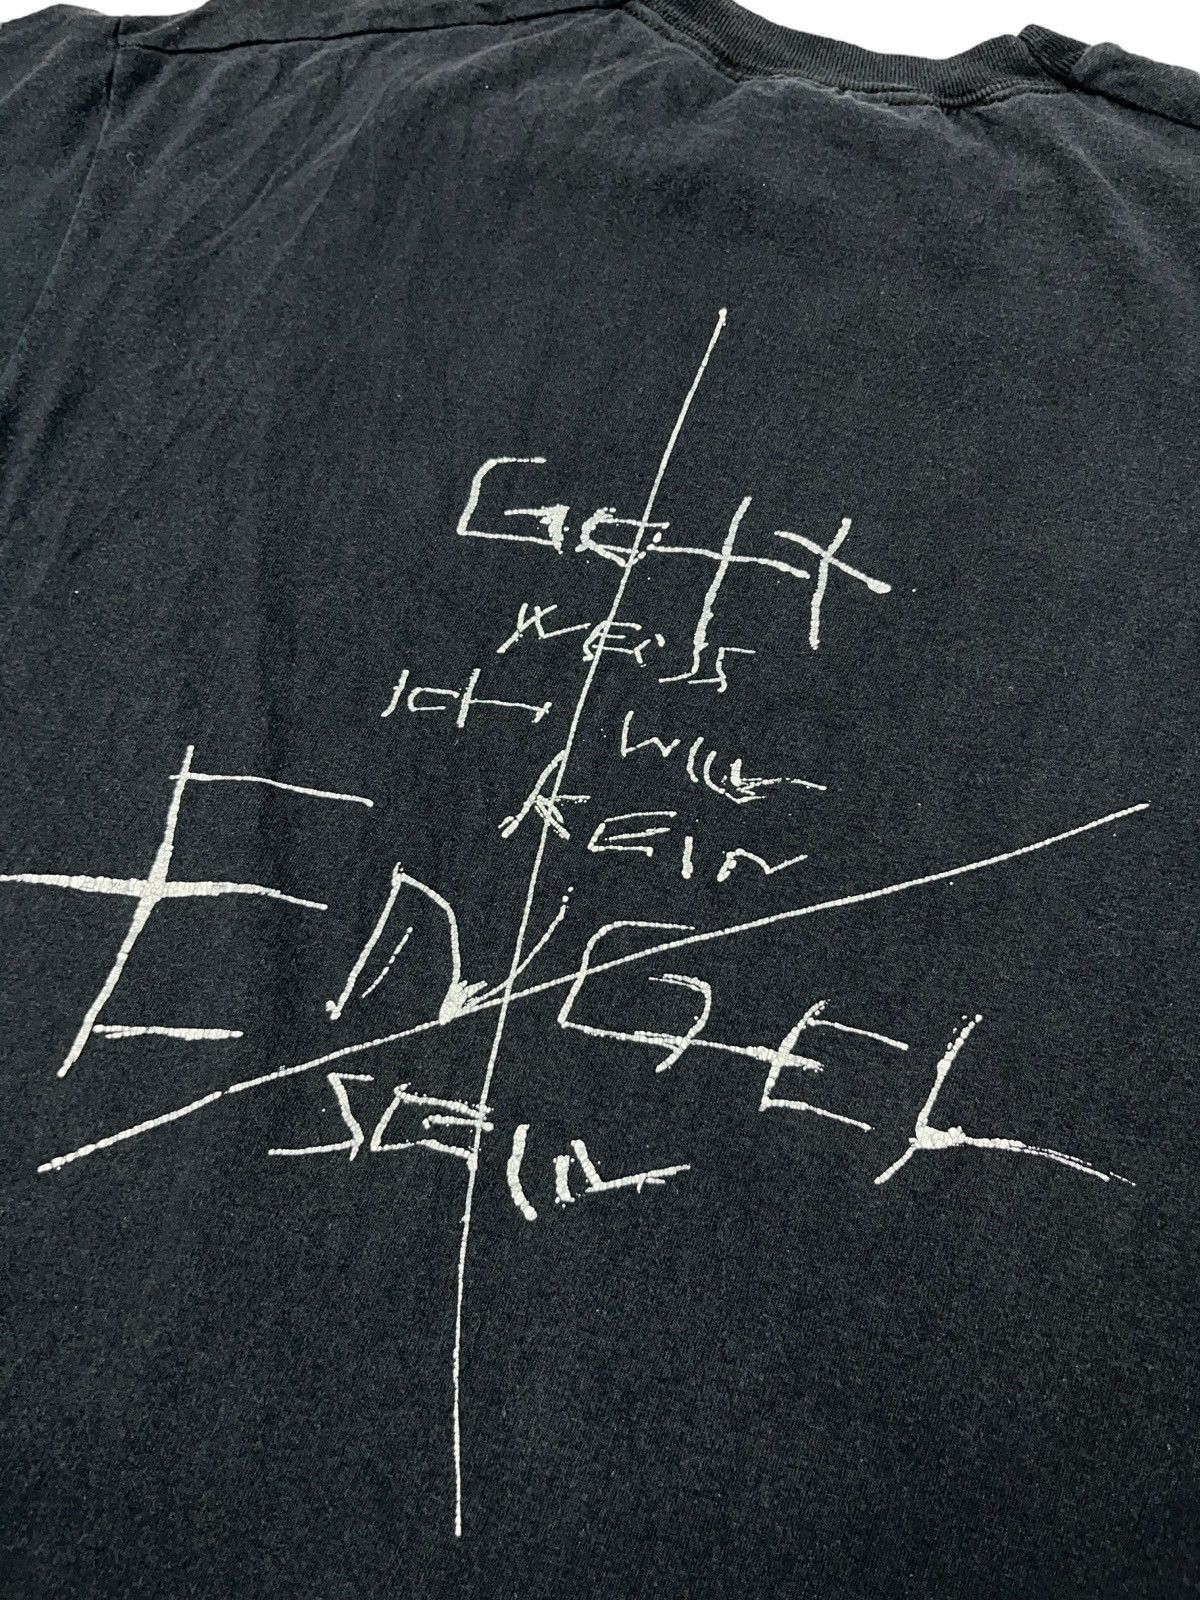 GOTT
WEISS
ICH WILL
KEIN
ENGEL
SEIN